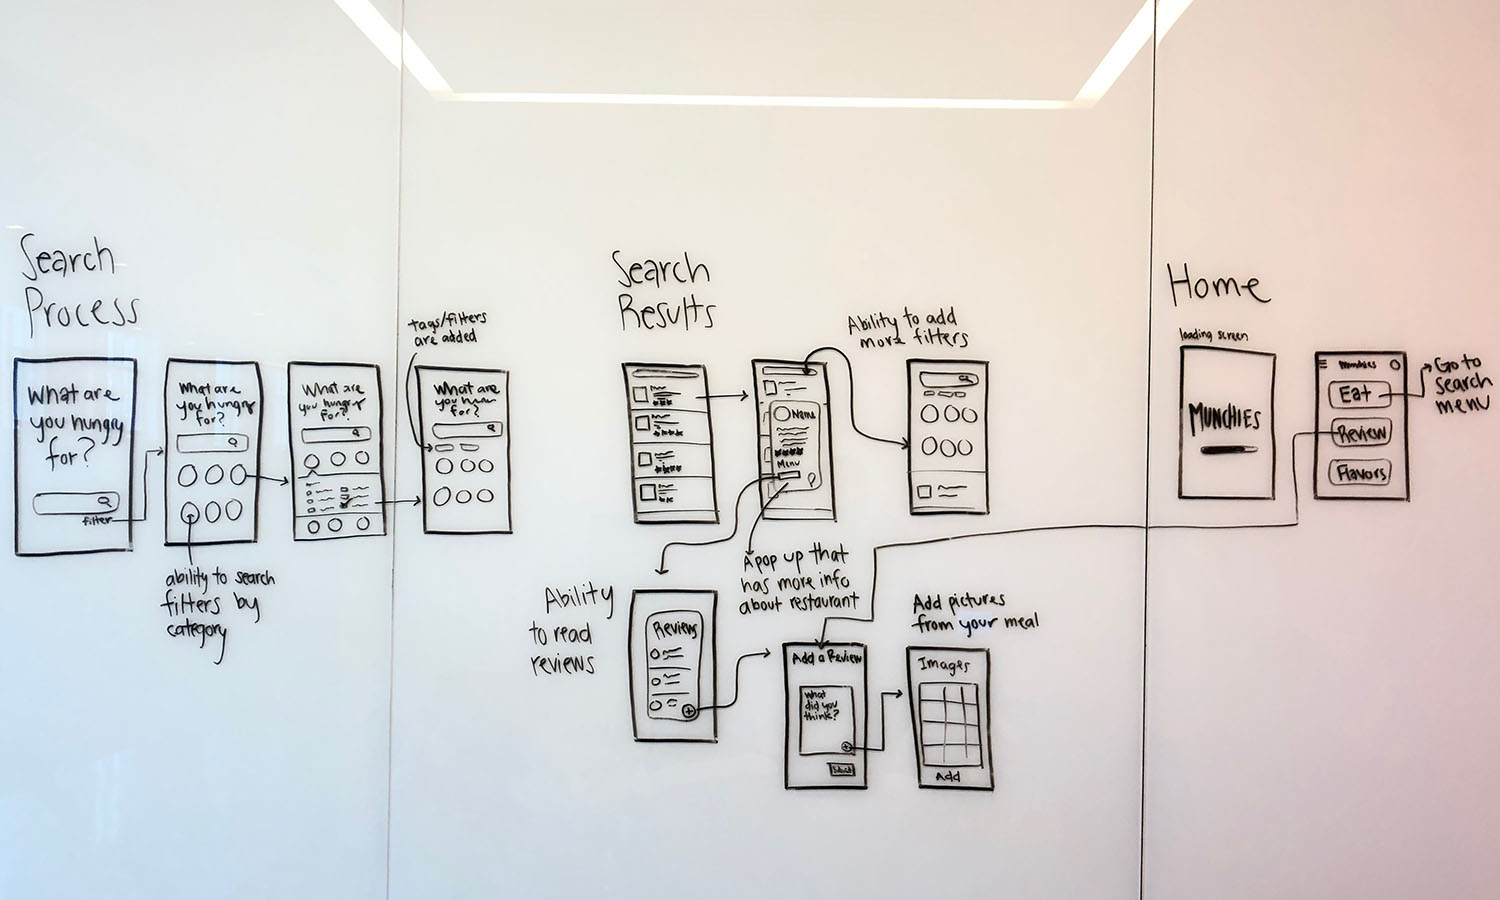 Search
Process
What are
you hungry
for?
filter
What are
you hungry
for?
ability to search
filters by
category
What are
you hungry
for?
tags/filters
are added
What are
you hungry
for?
Search
Results
Name
Menu
Ability to add
more filters
A pop up that
has more info
about restaurant
Ability
to read
reviews
Reviews
Add a Review
What
did you
think?
Add pictures
from your meal
Images
Add
Home
loading screen
MUNCHIES
Munchies
Eat
Review
Flavors
Go to
search
menu